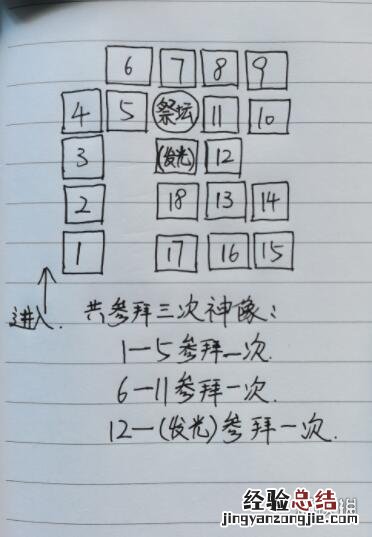 6 7 8 9
4 5 祭坛 11 10
3 (发光) 12
2 18 13 14
1 17 16 15
进入. 共参拜三次神像:
1—5参拜一次.
6—11参拜一次.
12—(发光)参拜一次.
经验总结
jingyanzongjie.com